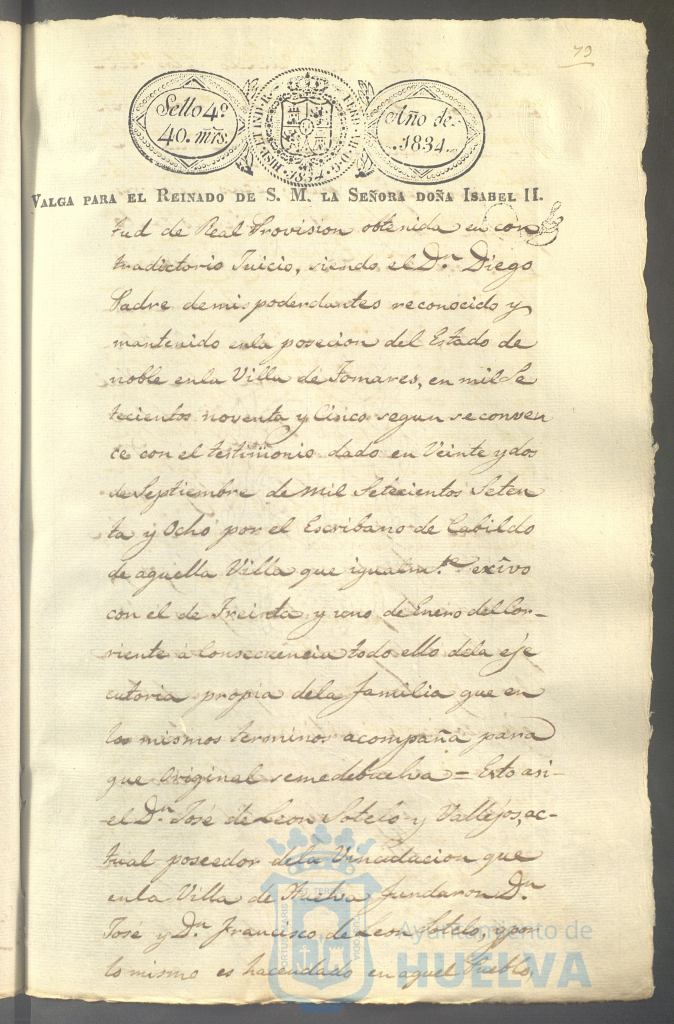 79
Sello 4º
40. mrs.
HISP. ET IND. R.
1834
Año de
1834.
VALGA PARA EL REINADO DE S. M. LA SEÑORA DOÑA ISABEL II.
tud de Real Provision obtenida en con
tradictorio Juicio, siendo el Dn. Diego
Padre demis poderdantes reconocido y
mantenido enla posecion del Estado de
noble enla Villa de Tomares, en mil Se
tecientos noventa y Cinco segun se conven
ce con el testimonio dado en Veinte y dos
de Septiembre de mil Setecientos Seten
ta y Ocho por el Escribano de Cabildo
de aquella Villa que igualmte. exivo
con el de Treinta y uno de Enero del Cor-
riente á Consecuencia todo ello dela eje
cutoria propia dela familia que en
los mismos terminos acompaña para
que Original semedebuelva = Esto asi-
el Dn. José de Leon Sotelo y Vallejos, ac-
tual poseedor dela Vinculacion que
enla Villa de Huelva fundaron Dn.
José y Dn. Francisco de Leon Sotelo, y por
lo mismo es hacendado en aquel Pueblo,
Ayuntamiento de
HUELVA